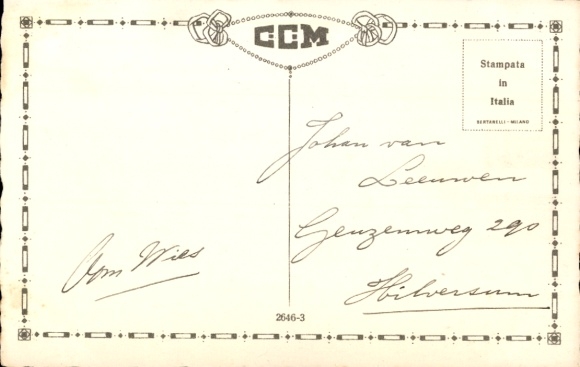 CCM
Stampata
in
Italia
BERTARELLI - MILANO
Johan van
Leeuwen
Geuzenweg 290
Hilversum
Oom Wies
2646-3